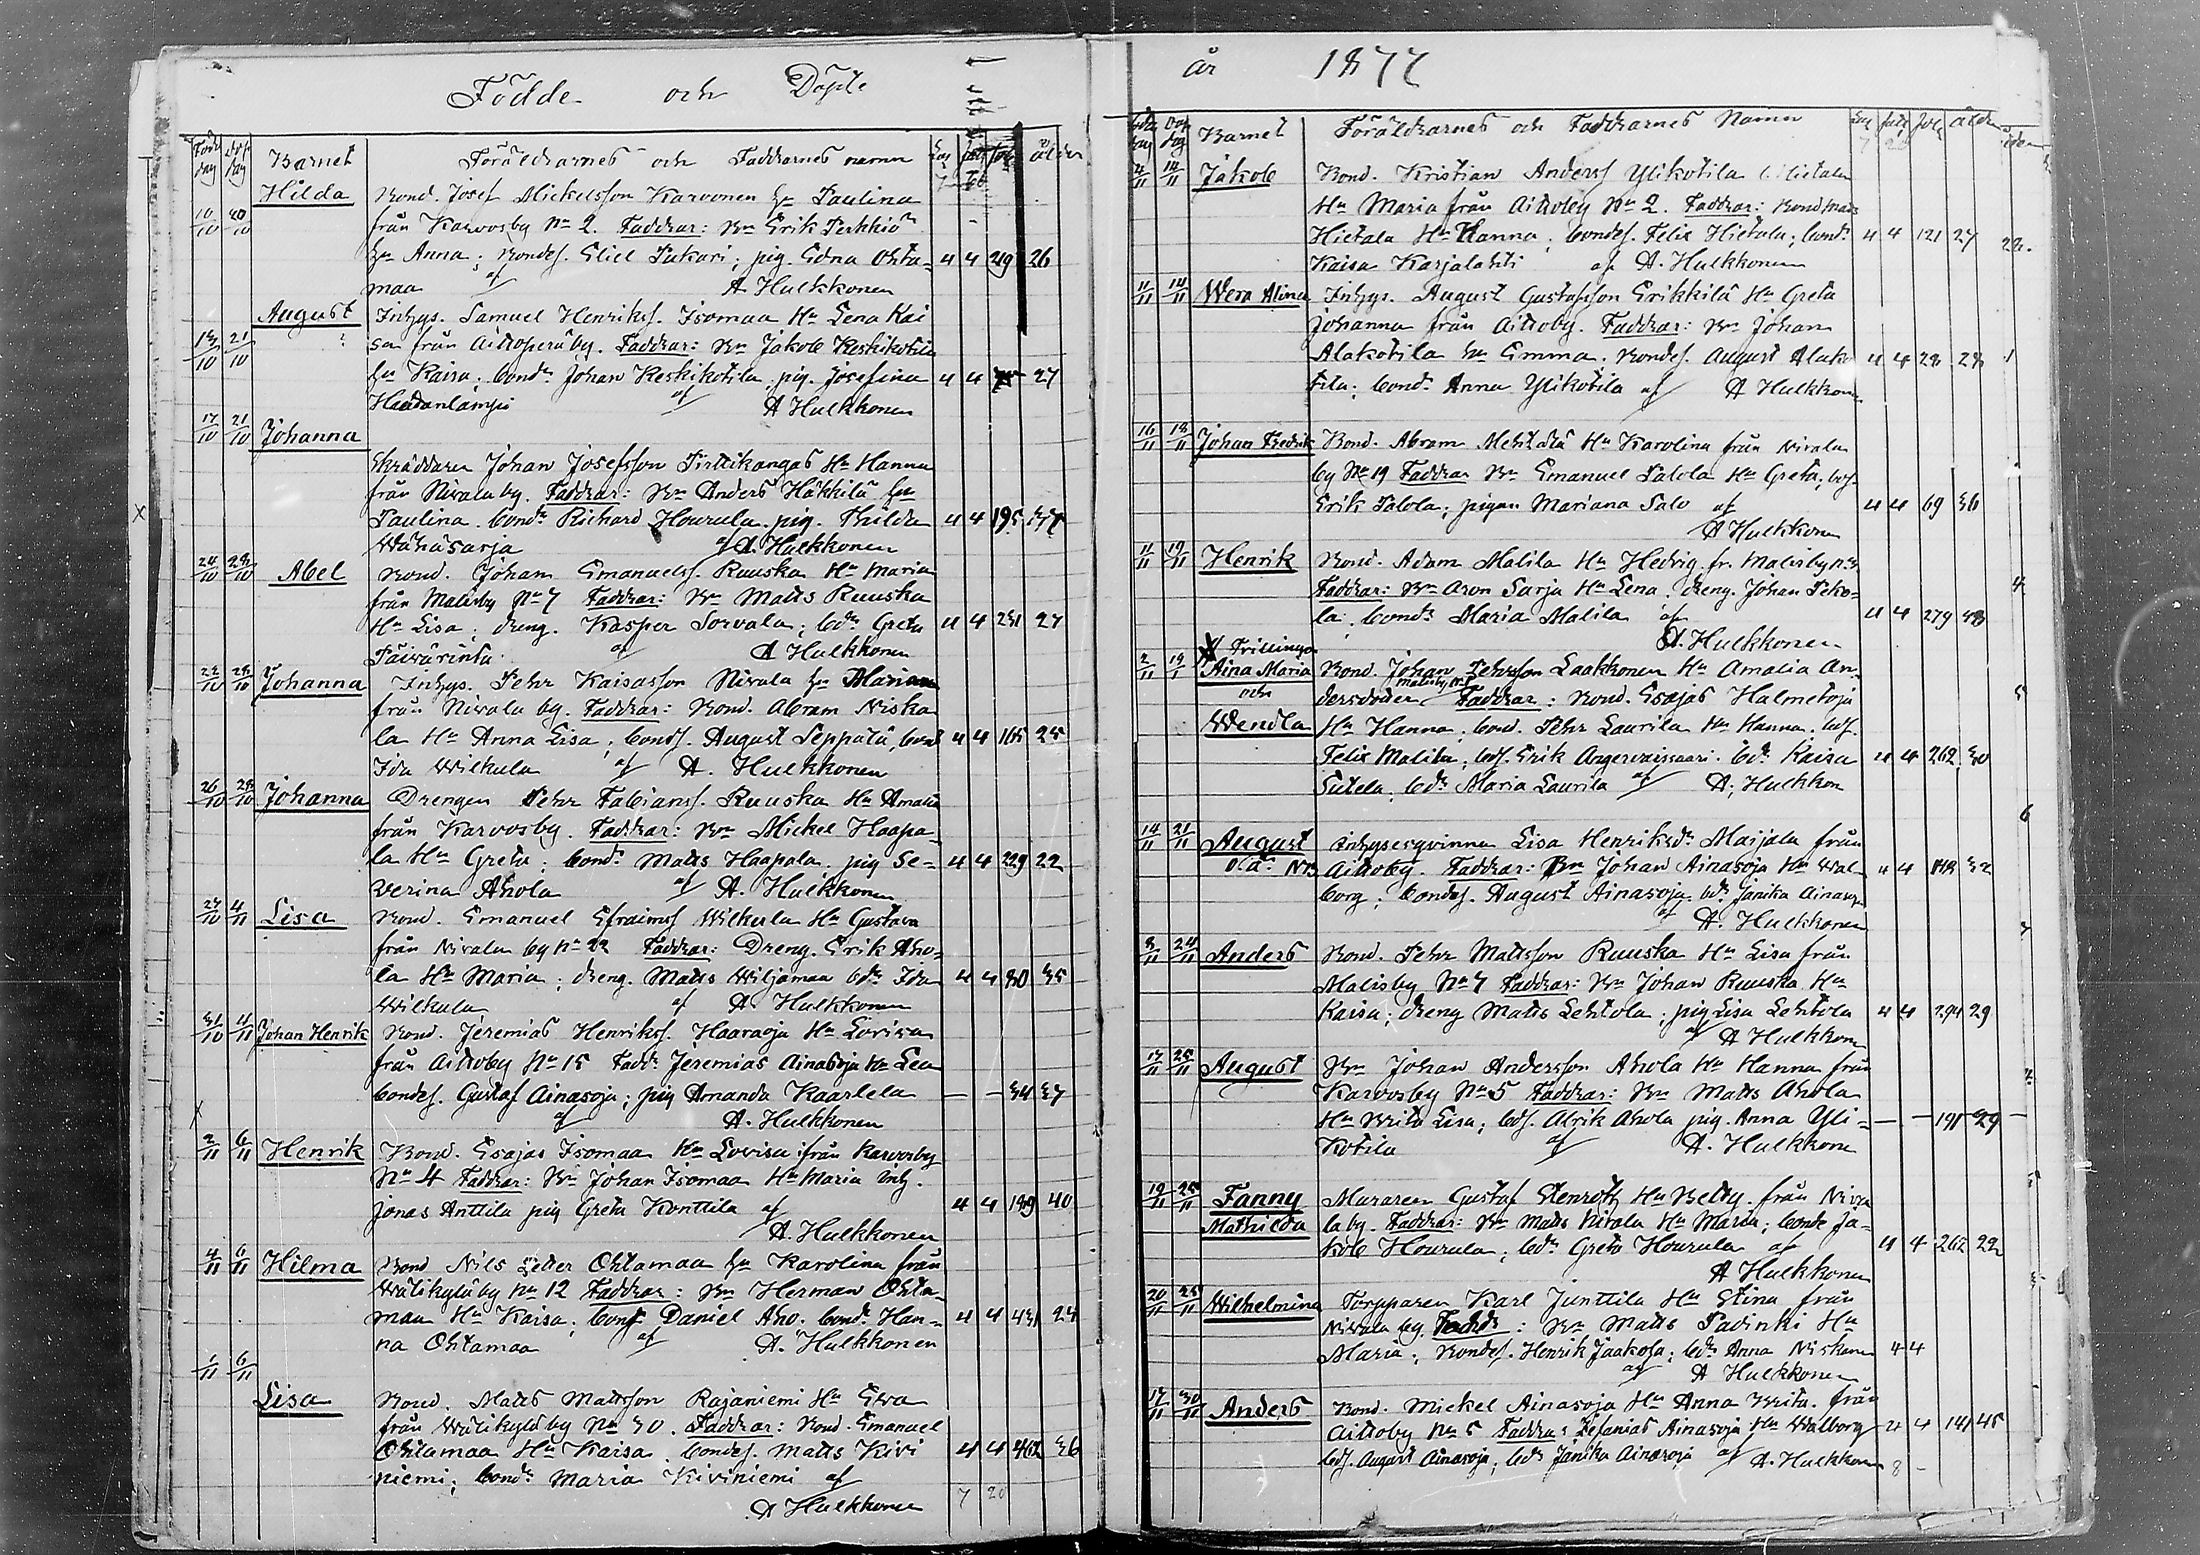 Födde och Döpte
Barnet Föräldrarnes och Faddrarnes namn
Hilda Bond. Josef Mickelsson Karvonen Hu Paulina
10/10 20/10 från Karvosby No 2. Faddrar: Bn Erik Perkkiö
Hu Anna; Bondes. Eliel Pukari; pig. Edna Ohta- 4 4 219 26
maa af A. Hulkkonen
August Inhys. Samuel Henrikss. Isomaa Hu Lena Kai
21/10 sa från Aittoperäby. Faddrar: Bn Jakob Keskikotila
Hu Kaisa; bondr Johan Keskikotila; pig. Josefina 4 4 75 27
af A Hulkkonen
17/10 21/10 Johanna
Skräddaren Johan Josefsson Pirttikangas Hu Hanna
från Nivalaby. Faddrar: Bn Anders Häkkilä Hu
Paulina. bondr Richard Hourula. pig. Hilda 4 4 195
Wähäsarja af A. Hulkkonen
24/10 28/10 Abel Bond. Johan Emanuelss. Ruuska Hu Maria
från Malisby No 7 Faddrar: Bn Matts Ruuska
Hu Lisa; dreng. Kasper Sorvala; bdr Greta 4 4 231 27
Päivärinta af A Hulkkonen
28/10 Johanna Inhys. Pehr Kaisasson Nivala Hu Maria
från Nivala by. Faddrar: Bond. Abram Niska
la Hu Anna Lisa; bonds. August Seppälä, bond 4 4 165 25
Ida Wilkula af A. Hulkkonen
26/10 28/10 Johanna Drengen Pehr Fabianss. Ruuska Hu Amalia
från Karvosby. Faddrar: Bn Mickel Haapa-
la Hu Greta; bondr Matts Haapala. pig Se- 4 4 229 22
verina Ahola af A. Hulkkonen
4/11 Lisa Bond. Emanuel Efraimss Wilkula Hu Gustava
från Nivala by No 22 Faddrar: Dreng. Erik Aho-
la Hu Maria; dreng. Matts Wiljamaa bdr Ida 4 4 80 35
Wilkula af A. Hulkkonen
31/10 4/11 Johan Henrik Bond. Jeremias Henrikss. Haaraoja Hu Lovisa
från Aittoby No 15 Faddr Jeremias Ainasoja Hu Lea
bondes. Gustaf Ainasoja; pig Amanda Kaarlela — — 34 37
af A. Hulkkonen
2/11 6/11 Henrik Bond. Esajas Isomaa Hu Lovisa från Karvosby
No 4 Faddrar: Bn Johan Isomaa Hu Maria inh.
Jonas Anttila pig Greta Konttila af 4 4 199 40
A. Hulkkonen
4/11 6/11 Hilma Bond Nils Petter Ohtamaa Hu Karolina från
Wälikyläby No 12 Faddrar: Bn Herman Ohta-
maa Hu Kaisa, bonds Daniel Aho. bondr Han- 4 4 431 24
na Ohtamaa af A. Hulkkonen
1/11 6/11
Lisa Bond. Matts Mattsson Rajaniemi Hu Ewa
från Wälikyläby No 30. Faddrar: Bond. Emanuel
Ohtamaa Hu Kaisa. bondes. Matts Kivi 4 4 462 36
niemi; bondr Maria Kiviniemi af
A Hulkkonen 7 20
år 1877
Barnet Föräldrarnes och Faddrarnes Namn
Jakob Bond. Kristian Anderss Ylikotila l. Hietala
Hu Maria från Aittoby No 2. Faddrar: Bond Matts
Hietala Hu Hanna; bondes. Felix Hietala; bondr 4 4 121 27
Kaisa Karjalahti af A. Hulkkonen
11/11 14/11 Wera Alina Inhys. August Gustafsson Erikkilä Hu Greta
Johanna från Aittoby. Faddrar: Bn Johan
Alakotila Hu Emma. Bondes. August Alako 4 4 28 28
tila; bondr Anna Ylikotila af A Hulkkonen
16/11 18/11 Johan Fredrik Bond. Abram Mehtälä Hu Karolina från Nivala
by No 19 Faddrar Bn Emanuel Palola Hu Greta, bds.
Erik Palola; pigan Mariana Salo af 4 4 69 36
A Hulkkonen
11/11 19/11 Henrik Bond. Adam Malila Hu Hedvig. fr. Malisby
Faddrar: Bn Aron Sarja Hu Lena. dreng. Johan Peko-
la; bondr Maria Malila af 4 4 279 43
A. Hulkkonen
Trillingar
Aina Maria Bond. Johan Pehrsson Laakkonen Hu Amalia An-
och dersdoder Malisby Faddrar: Bond. Esajas Halmetoja
Wendla Hu Hanna; bond. Pehr Laurila Hu Hanna. bds.
Felix Malila; bds. Erik Angervaissaari. bdr Kaisa 4 4 262 30
Sutela; bdr Maria Laurila af A. Hulkkon
14/11 21/11 August Inhysesqvinna Lisa Henriksdr Maijala från
Aittoby. Faddrar: Bn Johan Ainasoja Hu Wal- 4 4 32
borg; bondes. August Ainasoja. bdr Janika Ainasoja
af A. Hulkkonen
8/11 24/11 Anders Bond. Pehr Mattsson Ruuska Hu Lisa från
Malisby No 7 Faddrar: Bn Johan Ruuska Hu
Kaisa; dreng Matts Lehtola; pig Lisa Lehtola 4 4 294 29
af A Hulkkon
17/11 25/11 August Bn Johan Andersson Ahola Hu Hanna från
Karvosby No 5 Faddrar: Bn Matts Ahola
Hu Brita Lisa; bds. Alrik Ahola pig. Anna Yli- — — 191 29
kotila af A. Hulkkonen
19/11 25/11 Fanny Muraren Gustaf Stenroth Hu Betty. från Niva
Mathilda la by. Faddrar: Bn Matts Nivala Hu Maria; bonde Ja-
kob Hourula; bdr Greta Hourula af 4 4 262 22
A Hulkkonen
20/11 25/11 Wilhelmina Torpparen Karl Junttila Hu Stina från
Nivala by. Faddr: Bn Matts Padinki Hu
Maria; Bondes. Henrik Jaakola; bdr Anna Niskanen 4 4
af A Hulkkonen
17/11 30/11 Anders Bond. Mickel Ainasoja Hu Anna Brita. från
Aittoby No 5 Faddrar: Sefanias Ainasoja Hu Walborg 4 4 141 45
bds. August Ainasoja; bdr Janika Ainasoja af A. Hulkkonen 8